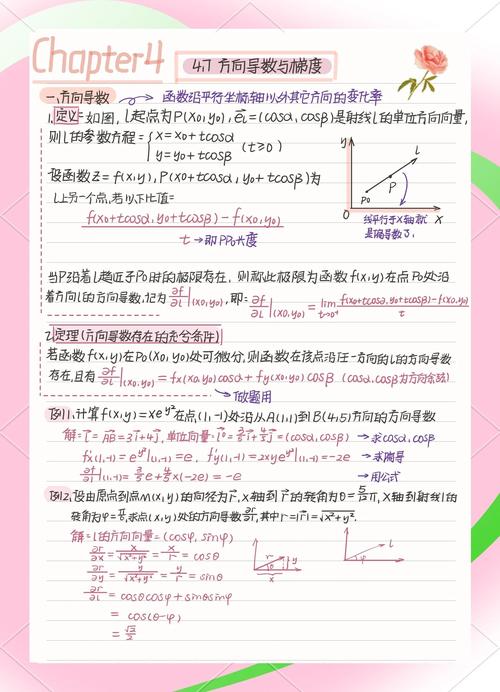 Chapter4
4.7 方向导数与梯度
一.方向导数 → 函数沿平行坐标轴以外其它方向的变化率
1.定义=如图, l起点为P(x0,y0), =(cosα, cosβ)是射线l的单位方向向量,
则l的参数方程={x=x0+tcosα
y=y0+tcosβ (t≥0)
设函数Z=f(x,y), P(x0+tcosα, y0+tcosβ)为
l上另一个点,若以下比值=
f(x0+tcosα, y0+tcosβ)-f(x0,y0)
t→即PP0长度
y
l
P
P0
0
x
线平行于X轴就
是偏导数了.
当P沿着l趋近于P0时的极限存在, 则称此极限为函数f(x,y)在点P0处沿
着方向l的方向导数,记为∂f/∂l|(x0,y0), 即:∂f/∂l|(x0,y0)=lim t→0+ f(x0+tcosα, y0+tcosβ)-f(x0,y0)/t
2.定理(方向导数存在的充分条件)
若函数f(x,y)在P0(x0,y0)处可微分,则函数在该点沿任一方向的l的方向导数
存在,且有∂f/∂l|(x0,y0)=fx(x0,y0)cosα+fy(x0,y0)cosβ (cosα,cosβ为方向余弦)
→做题用
例1.计算f(x,y)=xe^y²在点(1,-1)处沿从A(1,1)到B(4,5)方向的方向导数
解=l=AB=3i+4j, 单位向量:l0=3/5i+4/5j=(cosα,cosβ) →求cosα,cosβ
fx'(1,-1)=e^y²|(1,-1)=e, fy'(1,-1)=2xye^y²|(1,-1)=-2e →求偏导
∂f/∂l|(1,-1)=3/5e+4/5×(-2e)=-e →用公式
例2.设由原点到点M(x,y)的向径为r, X轴到r的转角为θ=5/12π, X轴到射线l的
转角为φ=π/6, 求点(x,y)处的方向导数∂r/∂l, 其中r=|r|=√x²+y².
解=l的方向向量=(cosφ, sinφ)
∂r/∂x=x/√x²+y²=x/r=cosθ
∂r/∂y=y/√x²+y²=y/r=sinθ
∂r/∂l=cosθcosφ+sinθsinφ
=cos(θ-φ)
=√2/2
r
θ
y
x
l
φ